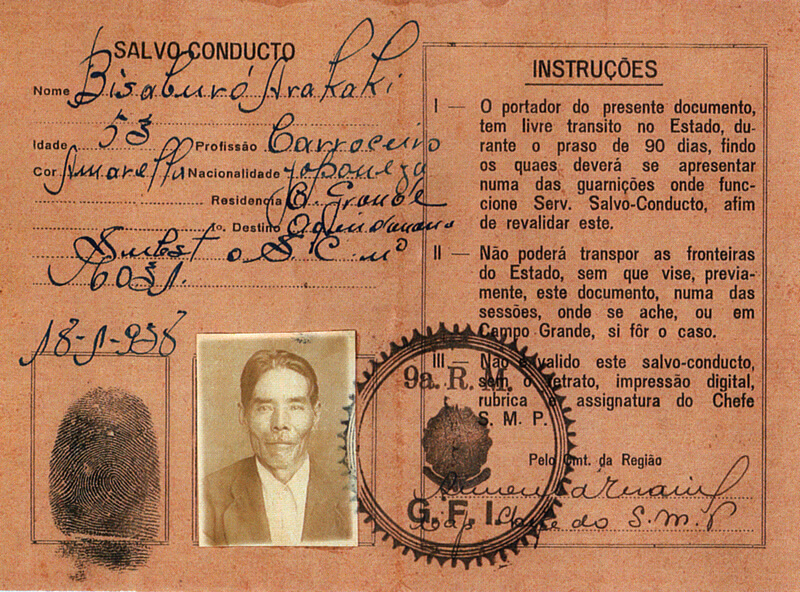 SALVO CONDUCTO
Nome Bisaburó Arakaki
Idade 53 Profissão Carroceiro
Cor Amarella Nacionalidade japoneza
Residencia C. Grande
1o. Destino Aquidauana
Subst o S. C. nº
18-1-938
INSTRUÇÕES
I — O portador do presente documento,
tem livre transito no Estado, du-
rante o praso de 90 dias, findo
os quaes deverá se apresentar
numa das guarnições onde func-
cione Serv. Salvo-Conducto, afim
de revalidar este.
II — Não poderá transpor as fronteiras
do Estado, sem que vise, previa-
mente, este documento, numa das
sessões, onde se ache, ou em
Campo Grande, si fôr o caso.
III — Não é valido este salvo-conducto,
sem o retrato, impressão digital,
rubrica e assignatura do Chefe
S. M. P.
Pelo Cmt. da Região
do S. M. P
9a. R. M.
G. F. I.